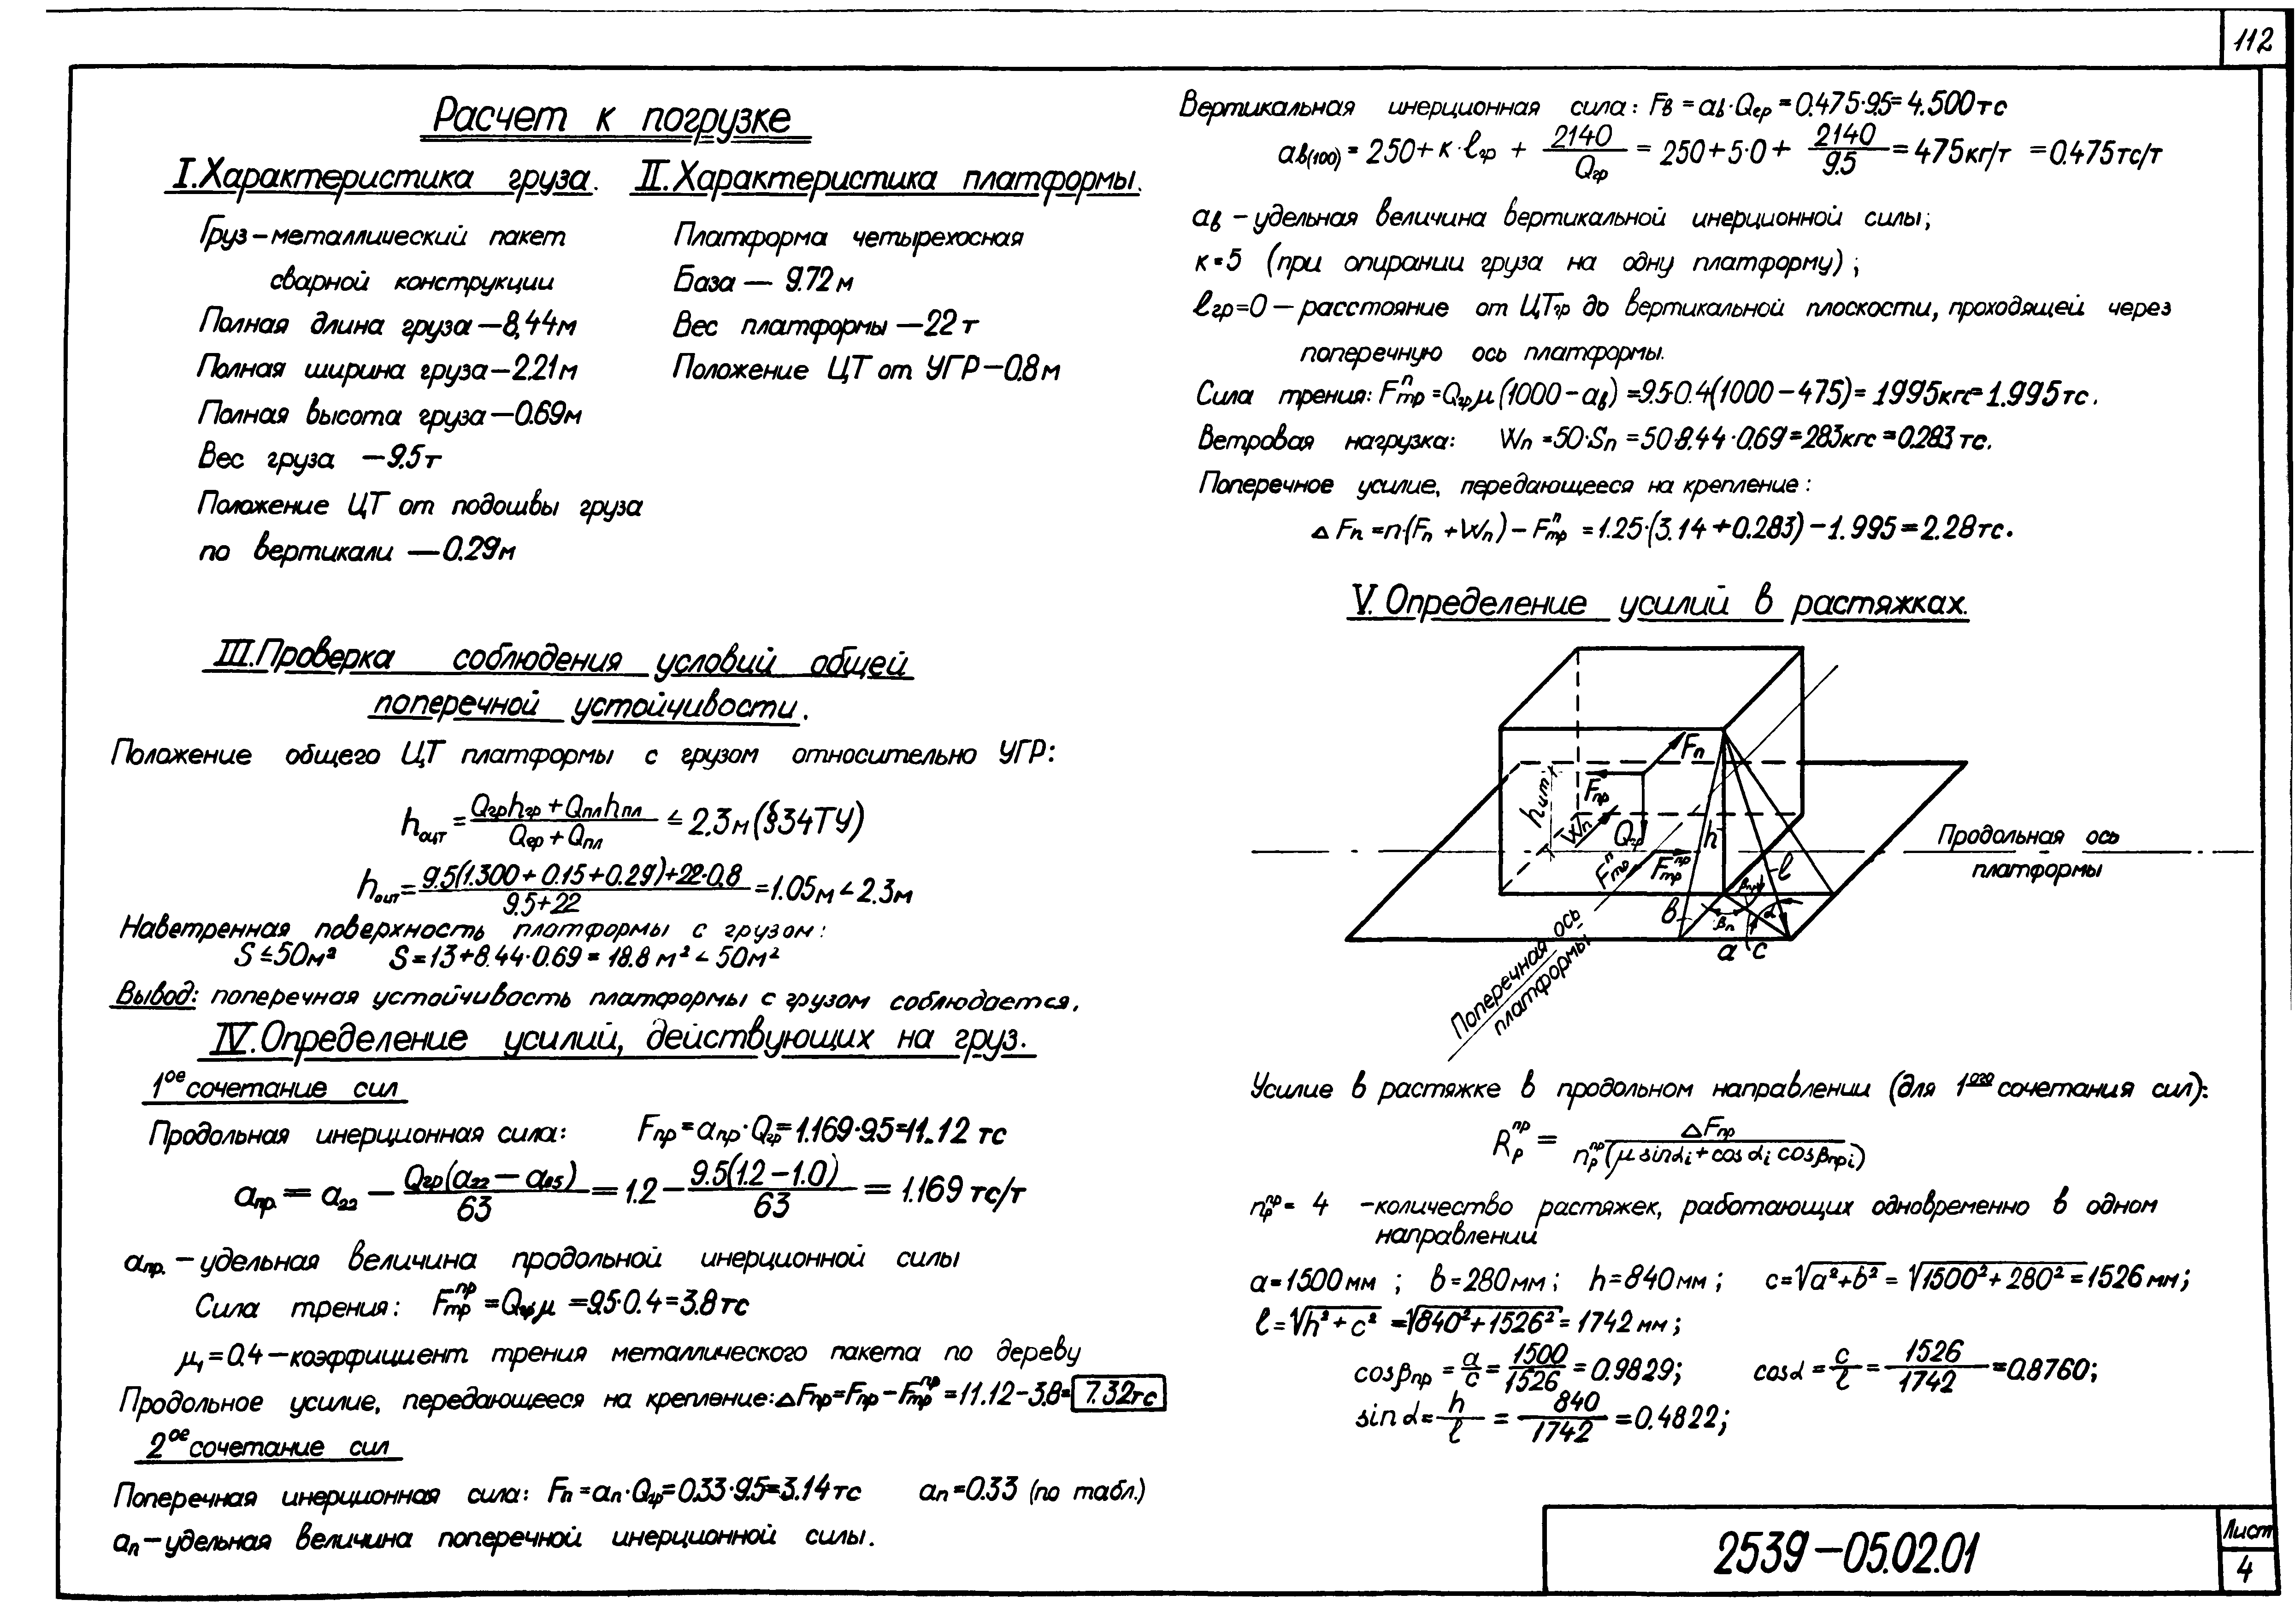 112
Расчет к погрузке
I. Характеристика груза.
Груз – металлический пакет
сварной конструкции
Полная длина груза – 8,44 м
Полная ширина груза – 2.21 м
Полная высота груза – 0.69 м
Вес груза – 9.5 т
Положение ЦТ от подошвы груза
по вертикали — 0.29 м
II. Характеристика платформы.
Платформа четырехосная
База — 9.72 м
Вес платформы — 22 т
Положение ЦТ от УГР – 0.8 м
III. Проверка соблюдения условий общей
поперечной устойчивости.
Положение общего ЦТ платформы с грузом относительно УГР:
hоцт = (Qгр hгр + Qпл hпл) / (Qгр + Qпл) ≤ 2.3 м (§34 ТУ)
hоцт = (9.5(1.300 + 0.15 + 0.29) + 22·0.8) / (9.5 + 22) = 1.05 м < 2.3 м
Наветренная поверхность платформы с грузом:
S ≤ 50 м² S = 13 + 8.44·0.69 = 18.8 м² < 50 м²
Вывод: поперечная устойчивость платформы с грузом соблюдается.
IV. Определение усилий, действующих на груз.
1ое сочетание сил
Продольная инерционная сила: Fпр = aпр·Qгр = 1.169·9.5 = 11.12 тс
aпр. = a22 − Qгр(a22 − a85) / 63 = 1.2 − 9.5(1.2 − 1.0) / 63 = 1.169 тс/т
aпр. – удельная величина продольной инерционной силы
Сила трения: Fтрпр = Qгр μ = 9.5·0.4 = 3.8 тс
μ1 = 0.4 – коэффициент трения металлического пакета по дереву
Продольное усилие, передающееся на крепление: ΔFпр = Fпр − Fтрпр = 11.12 − 3.8 = 7.32 тс
2ое сочетание сил
Поперечная инерционная сила: Fп = aп·Qгр = 0.33·9.5 = 3.14 тс aп = 0.33 (по табл.)
aп – удельная величина поперечной инерционной силы.
Вертикальная инерционная сила: Fв = aв·Qгр = 0.475·9.5 = 4.500 тс
aв(100) = 250 + к·lгр + 2140 / Qгр = 250 + 5·0 + 2140 / 9.5 = 475 кг/т = 0.475 тс/т
aв – удельная величина вертикальной инерционной силы;
к = 5 (при опирании груза на одну платформу);
lгр = 0 – расстояние от ЦТгр до вертикальной плоскости, проходящей через
поперечную ось платформы.
Сила трения: Fтрп = Qгр μ (1000 − aв) = 9.5·0.4(1000 − 475) = 1995 кгс = 1.995 тс.
Ветровая нагрузка: Wп = 50·Sп = 50·8.44·0.69 = 283 кгс = 0.283 тс.
Поперечное усилие, передающееся на крепление:
ΔFп = n·(Fп + Wп) − Fтрп = 1.25·(3.14 + 0.283) − 1.995 = 2.28 тс.
V. Определение усилий в растяжках.
Fп
hцт
Fпр
Wп
Qгр
h
Fтрп
Fтрпр
l
βпр
в
βп
α
a
c
Продольная ось
платформы
Поперечная ось
платформы
Усилие в растяжке в продольном направлении (для 1ого сочетания сил):
Rрпр = ΔFпр / nрпр(μ sin αi + cos αi cos βпрi)
nрпр = 4 – количество растяжек, работающих одновременно в одном
направлении
a = 1500 мм; в = 280 мм; h = 840 мм; c = √(a² + b²) = √(1500² + 280²) = 1526 мм;
l = √(h² + c²) = √(840² + 1526²) = 1742 мм;
cos βпр = a/c = 1500/1526 = 0.9829; cos α = c/l = 1526/1742 = 0.8760;
sin α = h/l = 840/1742 = 0.4822;
2539 – 05.02.01
Лист
4